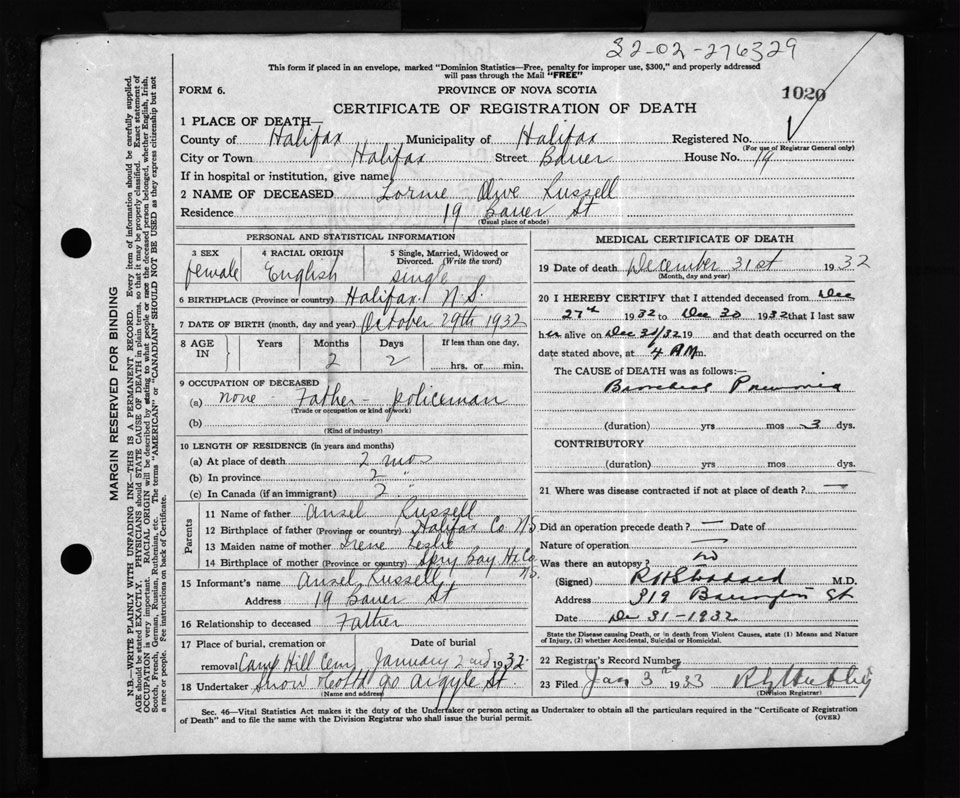 32-02-276329
This form if placed in an envelope, marked "Dominion Statistics—Free, penalty for improper use, $300," and properly addressed
will pass through the Mail "FREE"
FORM 6. PROVINCE OF NOVA SCOTIA 1020
CERTIFICATE OF REGISTRATION OF DEATH
1 PLACE OF DEATH—
County of Halifax Municipality of Halifax Registered No.
(For use of Registrar General only)
City or Town Halifax Street Bauer House No. 19
If in hospital or institution, give name
2 NAME OF DECEASED Lorme Olive Russell
Residence 19 Bauer St
(Usual place of abode)
PERSONAL AND STATISTICAL INFORMATION
3 SEX 4 RACIAL ORIGIN 5 Single, Married, Widowed or
Divorced. (Write the word)
female English single
6 BIRTHPLACE (Province or country) Halifax N.S.
7 DATE OF BIRTH (month, day and year) October 29th 1932
8 AGE IN Years Months Days If less than one day,
2 2 hrs. or min.
9 OCCUPATION OF DECEASED
(a) none - Father - policeman
(Trade or occupation or kind of work)
(b)
(Kind of industry)
10 LENGTH OF RESIDENCE (in years and months)
(a) At place of death 2 mos
(b) In province 2 "
(c) In Canada (if an immigrant) 2 "
Parents
11 Name of father Ansel Russell
12 Birthplace of father (Province or country) Halifax Co N.S
13 Maiden name of mother Irene Leslie
14 Birthplace of mother (Province or country) Spry Bay Hx Co
N.S.
15 Informant's name Ansel Russell
Address 19 Bauer St
16 Relationship to deceased Father
17 Place of burial, cremation or Date of burial
removal Camp Hill Cem January 2nd 1932.
18 Undertaker Snow 90 Argyle St.
(Name and address)
MEDICAL CERTIFICATE OF DEATH
19 Date of death December 31st 1932
(Month, day and year)
20 I HEREBY CERTIFY that I attended deceased from Dec
27th 1932 to Dec 30 1932 that I last saw
her alive on Dec 30/32 19 and that death occurred on the
date stated above, at 4 A.M m.
The CAUSE of DEATH was as follows:—
Bronchial Pneumonia
(duration) yrs mos 3 dys.
CONTRIBUTORY
(duration) yrs mos dys.
21 Where was disease contracted if not at place of death? —
Did an operation precede death? — Date of
Nature of operation —
Was there an autopsy? no
(Signed) R H Stoddard M.D.
Address 319 Barrington St
Date Dec 31-1932
State the Disease causing Death, or in death from Violent Causes, state (1) Means and Nature
of Injury, (2) whether Accidental, Suicidal or Homicidal.
22 Registrar's Record Number
23 Filed Jan 3rd 1933
(Division Registrar)
Sec. 46—Vital Statistics Act makes it the duty of the Undertaker or person acting as Undertaker to obtain all the particulars required in the "Certificate of Registration
of Death" and to file the same with the Division Registrar who shall issue the burial permit. (OVER)
MARGIN RESERVED FOR BINDING
N.B.—WRITE PLAINLY WITH UNFADING INK—THIS IS A PERMANENT RECORD. Every item of information should be carefully supplied.
AGE should be stated EXACTLY. PHYSICIANS should STATE CAUSE OF DEATH in plain terms, so that it may be properly classified. Exact statement of
OCCUPATION is very important. RACIAL ORIGIN will be described by stating to what people or race the deceased person belonged, whether English, Irish,
Scotch, French, German, Russian, Ruthenian, etc. The terms "AMERICAN" or "CANADIAN" SHOULD NOT BE USED as they express citizenship but not
a race or people. See instructions on back of Certificate.